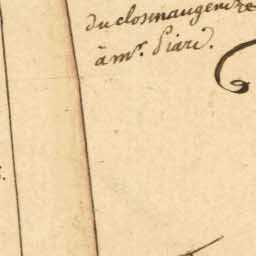 du closmaugendre
à mr. Piard.